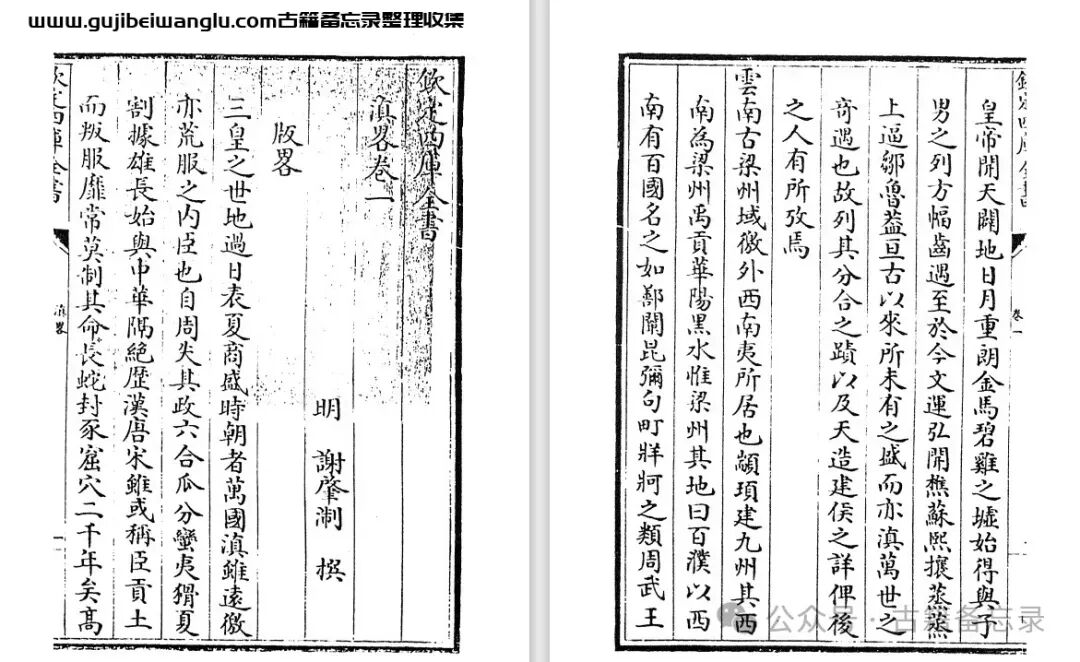 www.gujibeiwanglu.com古籍备忘录整理收集
欽定四庫全書
滇畧卷一
明 謝肇淛 撰
版畧
三皇之世地過日表夏商盛時朝者萬國滇雖遠徼
亦荒服之内臣也自周失其政六合瓜分蠻夷猾夏
割據雄長始與中華隔絶歴漢唐宋雖或稱臣貢土
而叛服靡常莫制其命長蛇封豕窟穴二千年矣髙
欽定四庫全書
滇畧
皇帝開天闢地日月重朗金馬碧雞之墟始得與子
男之列方幅齒遇至於今文運弘開樵蘇熙攘蒸蒸
上逼鄒魯葢亘古以來所未有之盛而亦滇萬世之
竒遇也故列其分合之蹟以及天造建侯之詳俾後
之人有所攷焉
雲南古梁州域徼外西南夷所居也顓頊建九州其西
南為梁州禹貢華陽黑水惟梁州其地曰百濮以西
南有百國名之如鄯闡昆彌句町牂牁之類周武王
欽定四庫全書
卷一
公众号·古籍备忘录